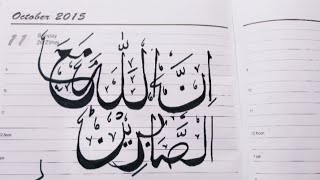 October 2015
11 Sunday
اِنَّ اللّٰهَ مَعَ
الصَّابِرِیْنَ